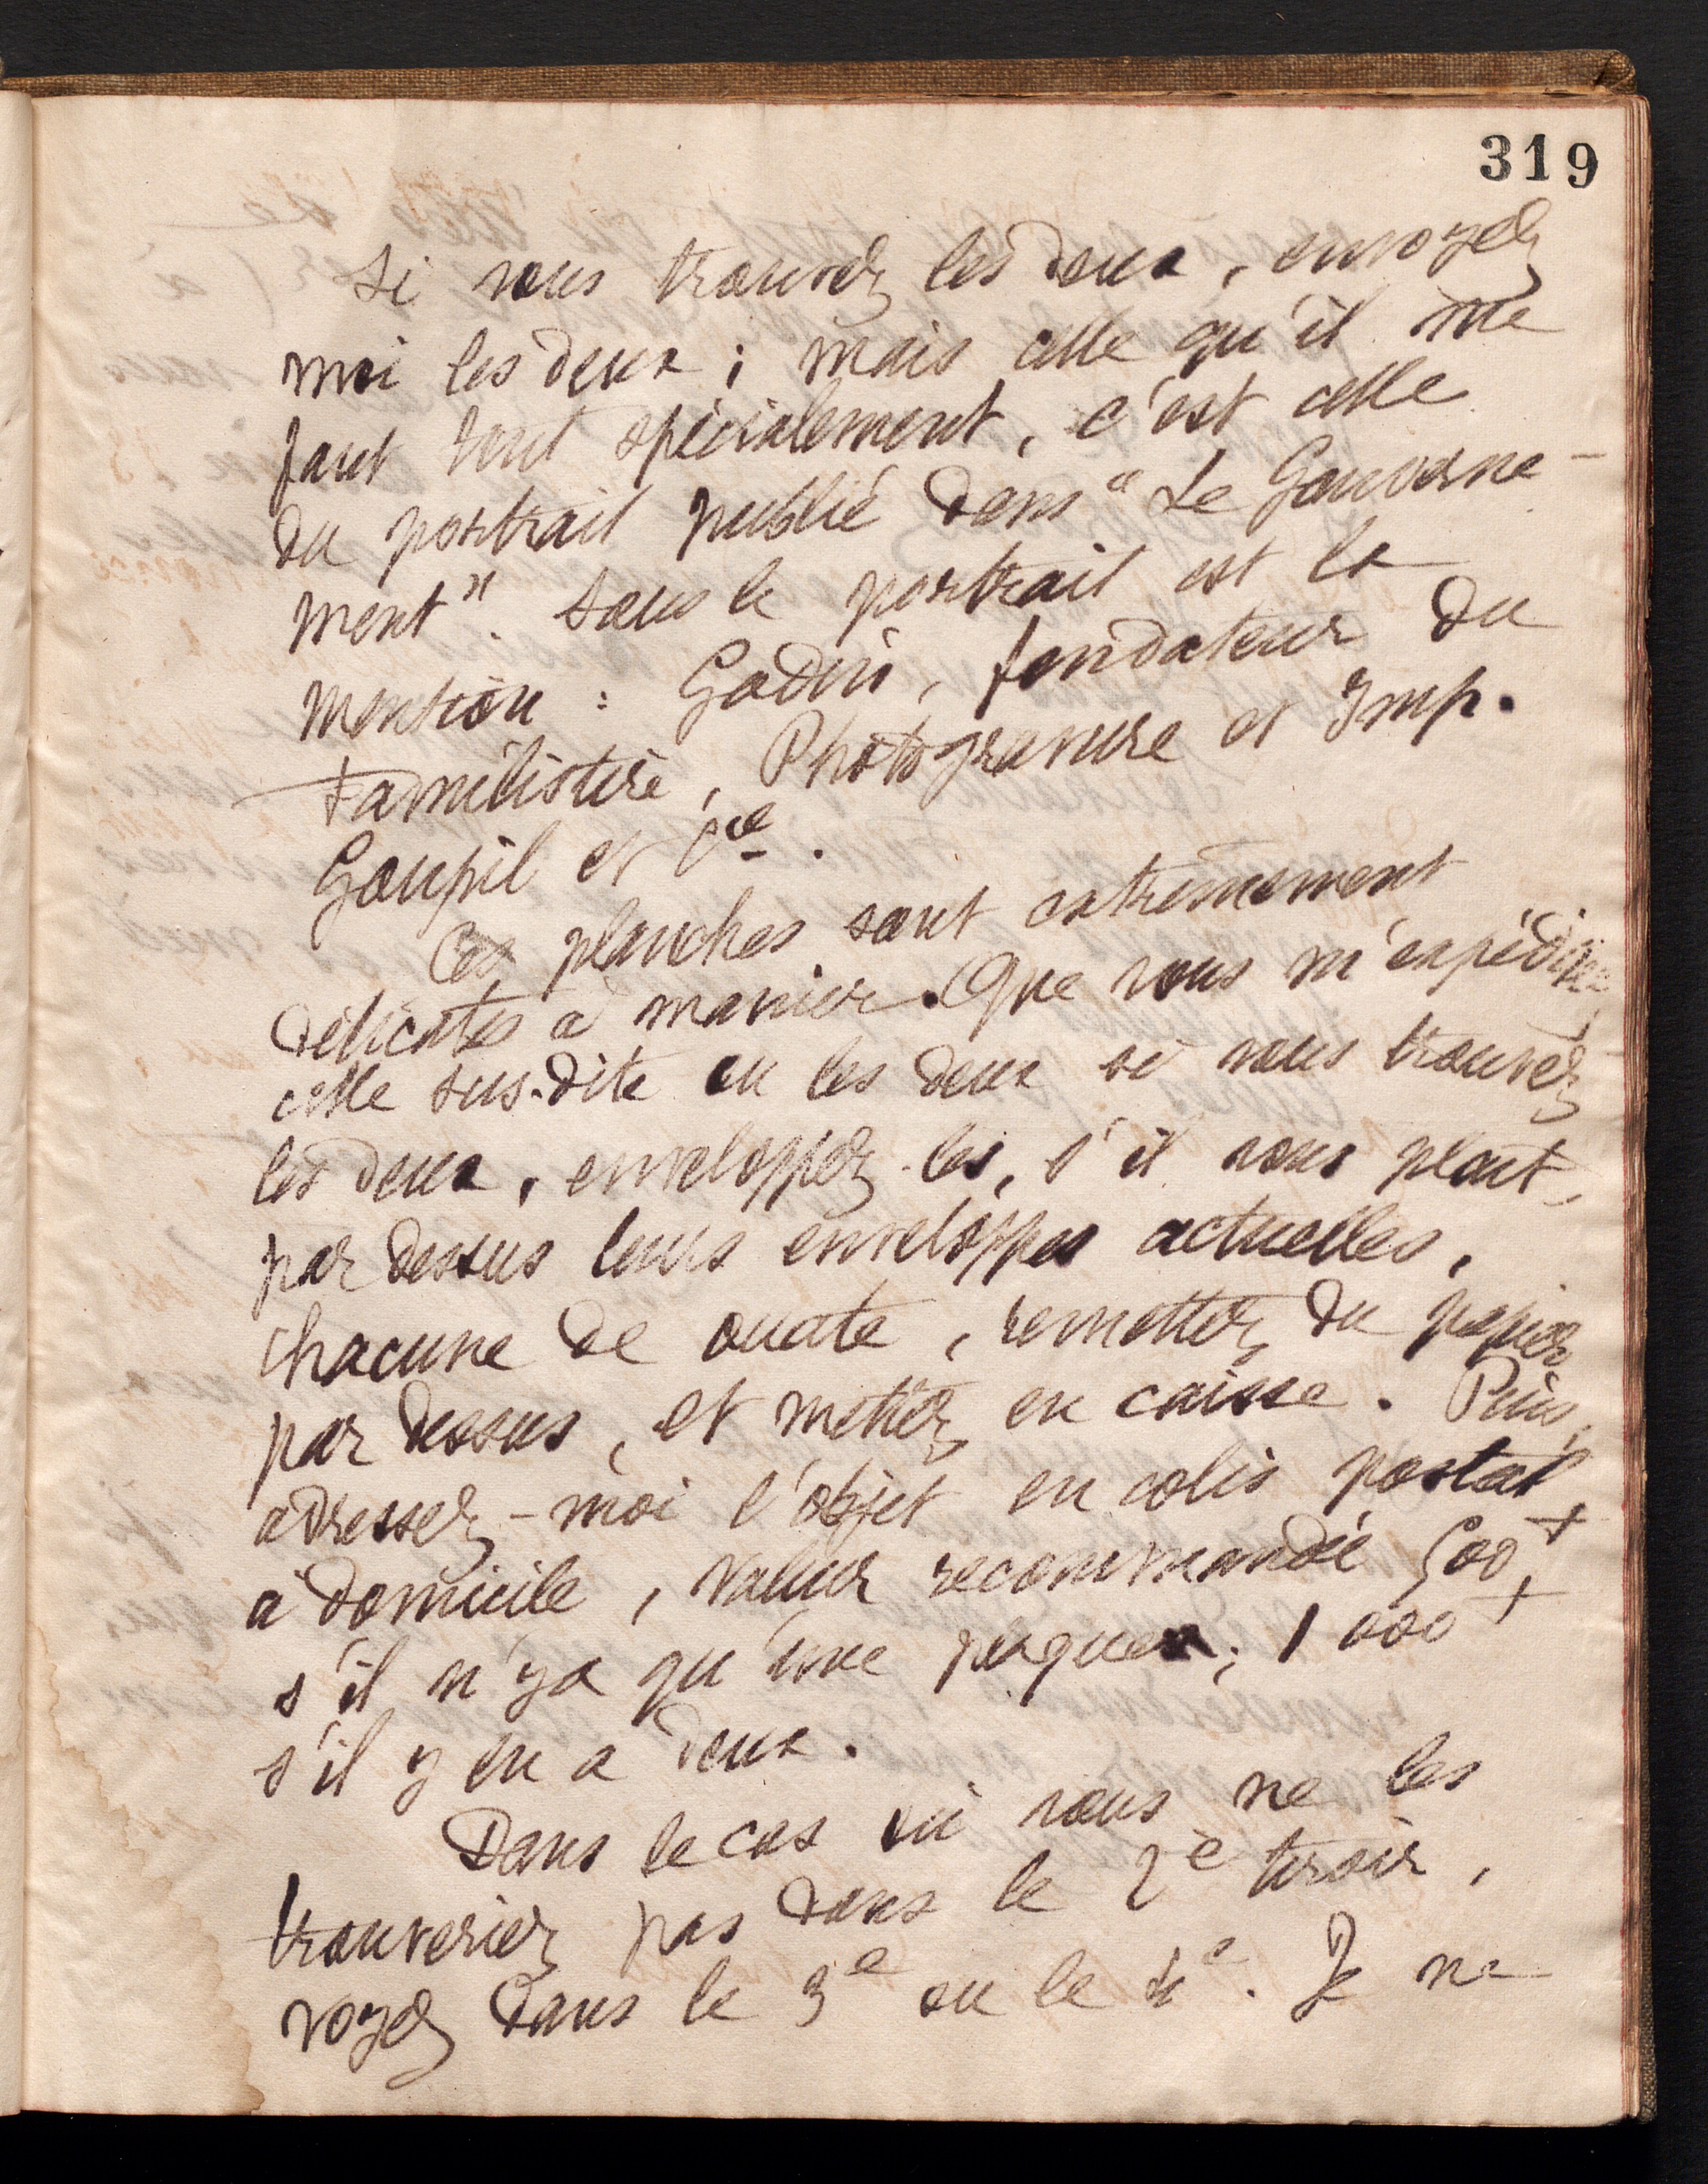 319
Si vous trouvez les deux, envoyez
moi les deux ; mais celle qu'il me
faut tout spécialement, c'est celle
du portrait publié dans " Le Gouverne-
ment ". Sous le portrait est la
mention : Godin, fondateur du
Familistère, Photogravure et Imp.
Goupil et Cie.
Ces planches sont extrêmement
délicates à manier. Que vous m'expédiiez
celle sus-dite ou les deux si vous trouvez
les deux, enveloppez-les, s'il vous plaît,
par dessus leurs enveloppes actuelles,
chacune de ouate, remettez du papier
par dessus, et mettez en caisse. Puis,
adressez-moi l'objet en colis postal
à domicile, valeur recommandé 500 f
s'il n'y a qu'une plaque ; 1 000 f
s'il y en a deux.
Dans le cas où vous ne les
trouveriez pas dans le 2e tiroir,
voyez dans le 3e ou le 4e. Je ne